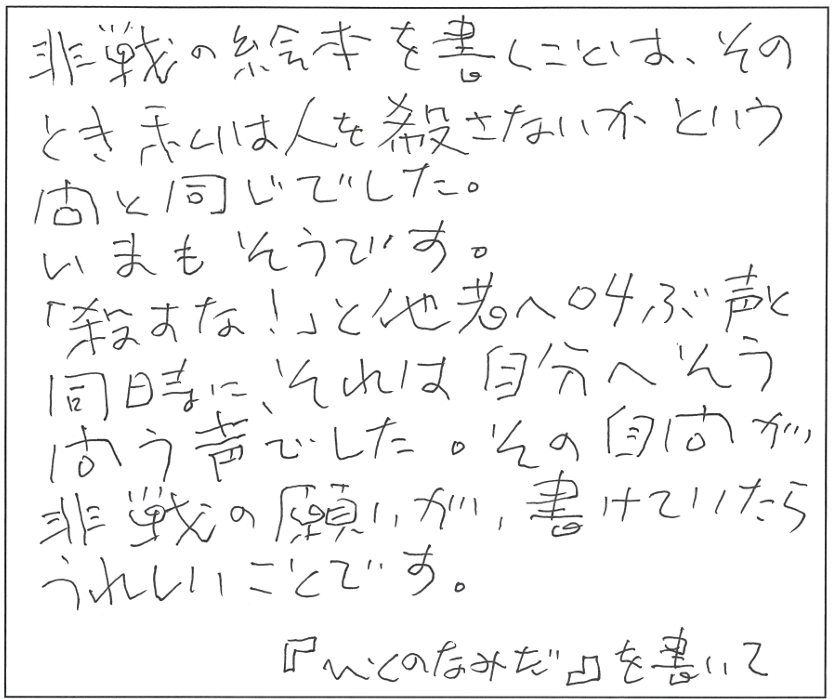 非戦の絵本を書くことは、その
とき私は人を殺さないかという
問と同じでした。
いまもそうです。
「殺すな！」と他者へ叫ぶ声と
同時に、それは自分へそう
問う声でした。その自問が、
非戦の願いが、書けていたら
うれしいことです。
『いくさのなみだ』を書いて